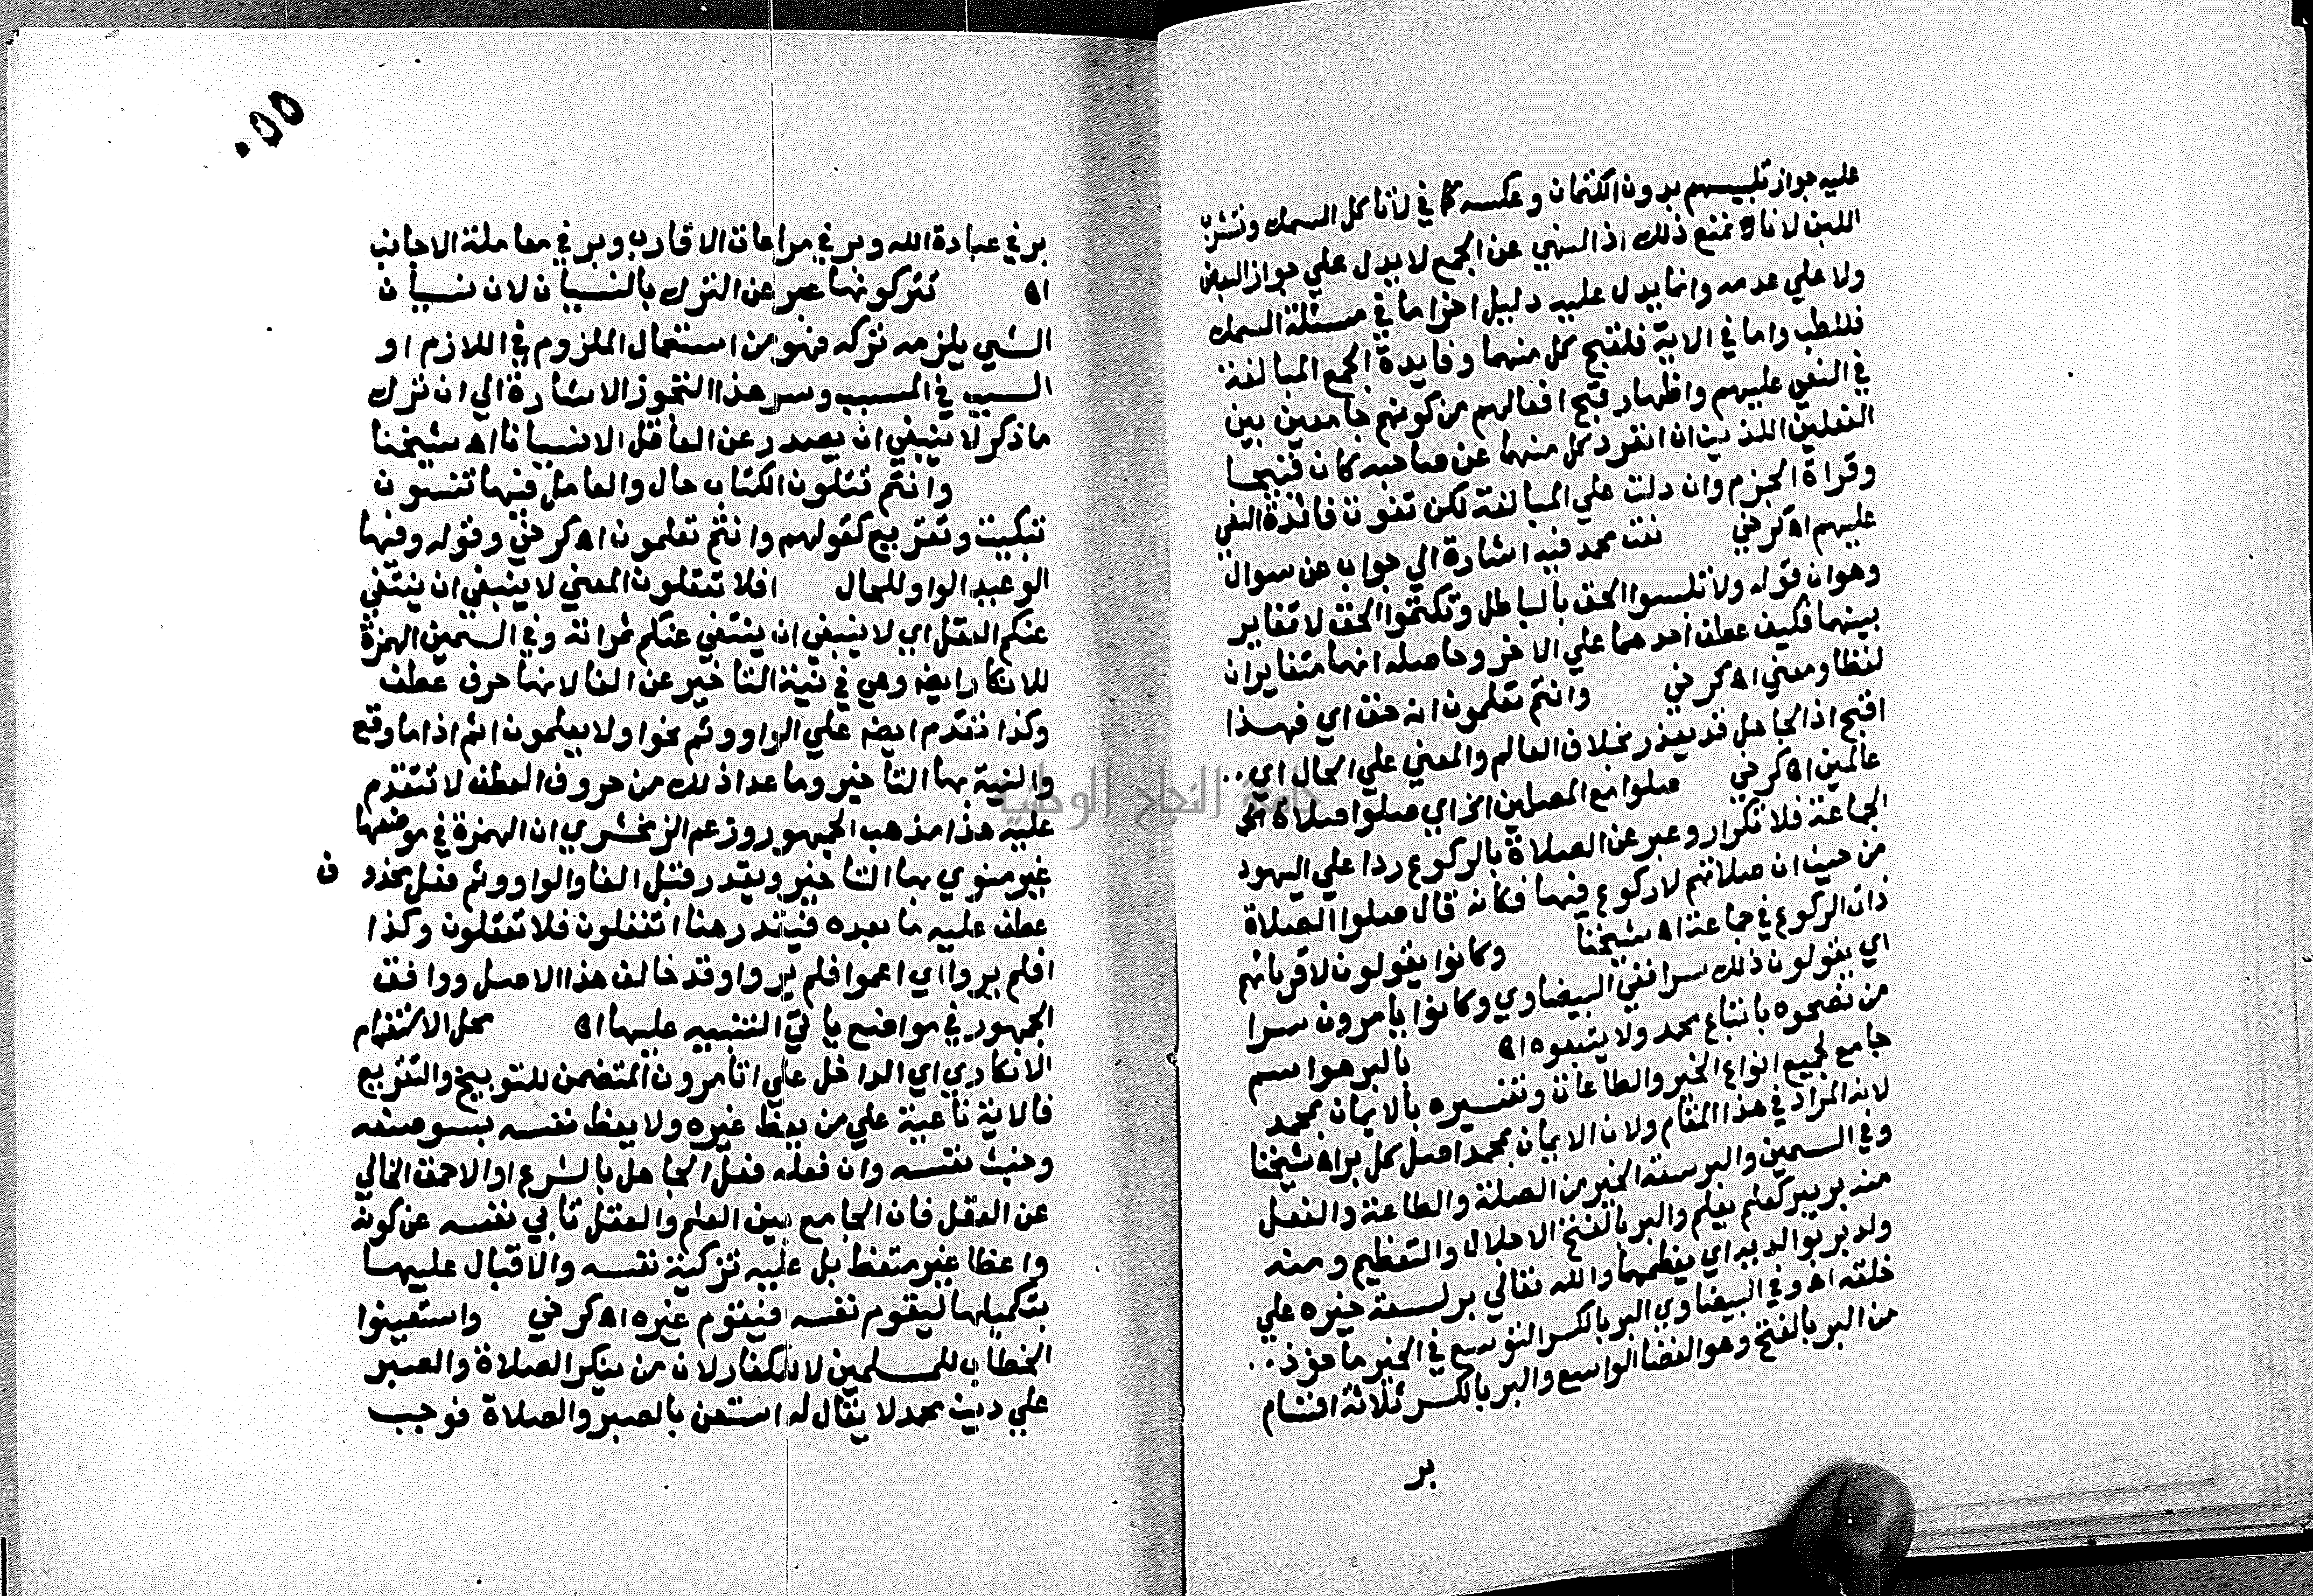 عليه جواز تلبيسهم بدون الكتمان وعكسه كما في لا تاكل السمك وتشرب
اللبن لانا نمنع ذلك اذ النهي عن الجمع لا يدل علي جواز البعض
ولا علي عدمه وانما يدل عليه دليل اخر اما في مسئلة السمك
فللطب واما في الاية فلقبح كل منهما وفايدة الجمع المبالغة
في النعي عليهم واظهار قبح افعالهم من كونهم جامعين بين
الفعلين اللذين ان انفرد كل منهما عن صاحبه كان قبيحا
وقراة الجزم وان دلت علي المبالغة لكن تفوت فائدة النعي
عليهم اه كرخي نعت محمد فيه اشارة الي جواب عن سوال
وهو ان قوله ولا تلبسوا الحق بالباطل وتكتموا الحق لا تغاير
بينهما فكيف عطف احدهما علي الاخر وحاصله انهما متغايران
لفظا ومعني اه كرخي وانتم تعلمون انه حق اي فهذا
اقبح اذ الجاهل قد يعذر بخلاف العالم والمعني علي الحال اي
عالمين اه كرخي صلوا مع المصلين الخ اي صلوا صلاة
الجماعة فلا تكرار وعبر عن الصلاة بالركوع ردا علي اليهود
من حيث ان صلاتهم لا ركوع فيها فكانه قال صلوا الصلاة
ذات الركوع في جماعة اه شيخنا وكانوا يقولون لاقربائهم
اي يقولون ذلك سرا ففي البيضاوي وكانوا يامرون سرا
من نصحوه باتباع محمد ولا يتبعوه اه بالبر هو اسم
جامع لجميع انواع الخير والطاعات وتفسيره بالايمان بمحمد
لانه المراد في هذا المقام ولان الايمان بمحمد اصل كل بر اه شيخنا
وفي السمين والبر سعة الخير من الصلة والطاعة والفعل
منه بر يبر كعلم يعلم والبر بالفتح الاجلال والتعظيم ومنه
ولد بر بوالديه اي يعظمهما والله تعالي بر لسعة خيره علي
خلقه اه وفي البيضاوي البر بالكسر التوسع في الخير ماخوذ
من البر بالفتح وهو الفضا الواسع والبر بالكسر ثلاثة اقسام
بر
٥٥٠
بر في عبادة الله وبر في مراعات الاقارب وبر في معاملة الاجانب
اه تتركونها عبر عن الترك بالنسيان لان نسيان
الشي يلزمه تركه فهو من استعمال الملزوم في اللازم او
السبب في المسبب وسر هذا التجوز الاشارة الي ان ترك
ما ذكر لا ينبغي ان يصدر عن العاقل الا نسيانا اه شيخنا
وانتم تتلون الكتاب حال والعامل فيها تنسون
تبكيت وتقريع كقولهم وانتم تعلمون اه كرخي وقوله وفيها
الوعيد الواو للحال افلا تعقلون المعني لا ينبغي ان ينتفي
عنكم العقل اي لا ينبغي ان ينتفي عنكم ثمراته وفي السمين الهمزة
للانكار ايضا وهي في نية التاخير عن الفا لانها حرف عطف
وكذا تتقدم ايضا علي الواو وثم نحو اولا يعلمون اثم اذا ما وقع
والنية بها التاخير وما عدا ذلك من حروف العطف لا تتقدم
عليه هذا مذهب الجمهور وزعم الزمخشري ان الهمزة في موضعها
غير منوي بها التاخير ويقدر قبل الفا والواو وثم فعل محذوف
عطف عليه ما بعده فيقدر هنا اتغفلون فلا تعقلون وكذا
افلم يروا اي اعموا فلم يروا وقد خالف هذا الاصل ووافق
الجمهور في مواضع ياتي التنبيه عليها اه محل الاستفهام
الانكاري اي الداخل علي اتامرون المتضمن للتوبيخ والتقريع
فالاية ناعية علي من يعظ غيره ولا يعظ نفسه بسو صنعه
وخبث نفسه وان فعله فعل الجاهل بالشرع او الاحمق الخالي
عن العقل فان الجامع بين العلم والعقل تابي نفسه عن كونه
واعظا غير متعظ بل عليه تزكية نفسه والاقبال عليها
بتكميلها ليقوم نفسه فيقوم غيره اه كرخي واستعينوا
الخطاب للمسلمين لا للكفار لان من ينكر الصلاة والصبر
علي دين محمد لا يقال له استعن بالصبر والصلاة فوجب
جامعة النجاح الوطنية